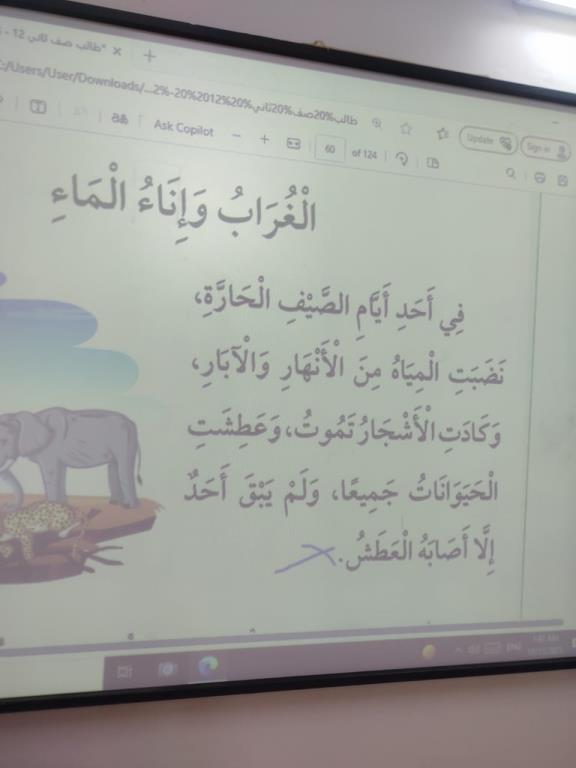 طالب صف ثاني 12 -
C:/Users/User/Downloads/...2%-20%2012%20%ثاني20%صف20%طالب
Ask Copilot
60 of 124
Update
Sign in
الْغُرَابُ وَإِنَاءُ الْمَاءِ
فِي أَحَدِ أَيَّامِ الصَّيْفِ الْحَارَّةِ،
نَضَبَتِ الْمِيَاهُ مِنَ الْأَنْهَارِ وَالْآبَارِ،
وَكَادَتِ الْأَشْجَارُ تَمُوتُ، وَعَطِشَتِ
الْحَيَوَانَاتُ جَمِيعًا، وَلَمْ يَبْقَ أَحَدٌ
إِلَّا أَصَابَهُ الْعَطَشُ.
ENG